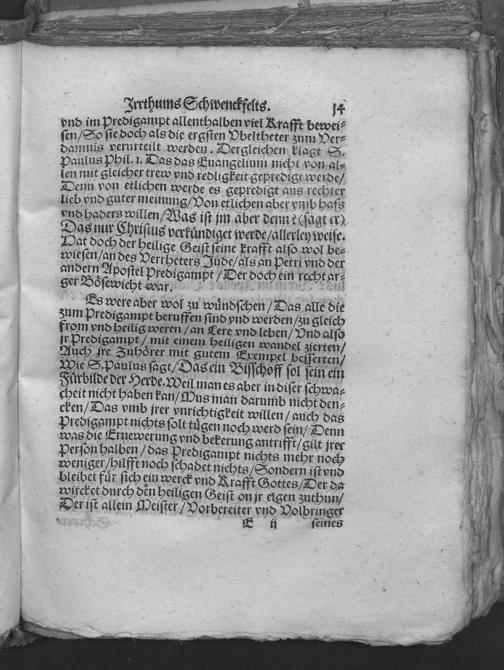 Jrrthums Schwenckfelts. 14
vnd im Predigampt allenthalben viel Krafft bewei-
sen/So sie doch als die ergsten Vbeltheter zum Ver-
damnis verurteilt werden. Dergleichen klagt S.
Paulus Phil. 1. Das das Euangelium nicht von al-
len mit gleicher trew vnd redligkeit gepredigt werde/
Denn von etlichen werde es gepredigt aus rechter
lieb vnd guter meinung/Von etlichen aber vmb hass
vnd haders willen/Was ist jm aber denn? (sagt er)
Das nur Christus verkündiget werde/allerley weise.
Hat doch der heilige Geist seine krafft also wol be-
wiesen/an des Verrheters Jude/als an Petri vnd der
andern Apostel Predigampt/Der doch ein recht ar-
ger Bösewicht war.
Es were aber wol zu wündschen/Das alle die
zum Predigampt beruffen sind vnd werden/zu gleich
from vnd heilig weren/an Lere vnd leben/Vnd also
jr Predigampt/mit einem heiligen wandel zierten/
Auch jre Zuhörer mit gutem Exempel besserten/
Wie S. Paulus sagt/Das ein Bisschoff sol sein ein
Fürbilde der Herde. Weil man es aber in diser schwa-
cheit nicht haben kan/Mus man darumb nicht den-
cken/Das vmb jrer vnrichtigkeit willen/auch das
Predigampt nichts solt tügen noch werd sein/Denn
was die Ernewerung vnd bekerung antrifft/gilt jrer
Person halben/das Predigampt nichts mehr noch
weniger/hilfft noch schadet nichts/Sondern ist vnd
bleibet für sich ein werck vnd Krafft Gottes/Der da
wircket durch den heiligen Geist on jr eigen zuthun/
Der ist allein Meister/Vorbereiter vnd Volbringer
E ij seines